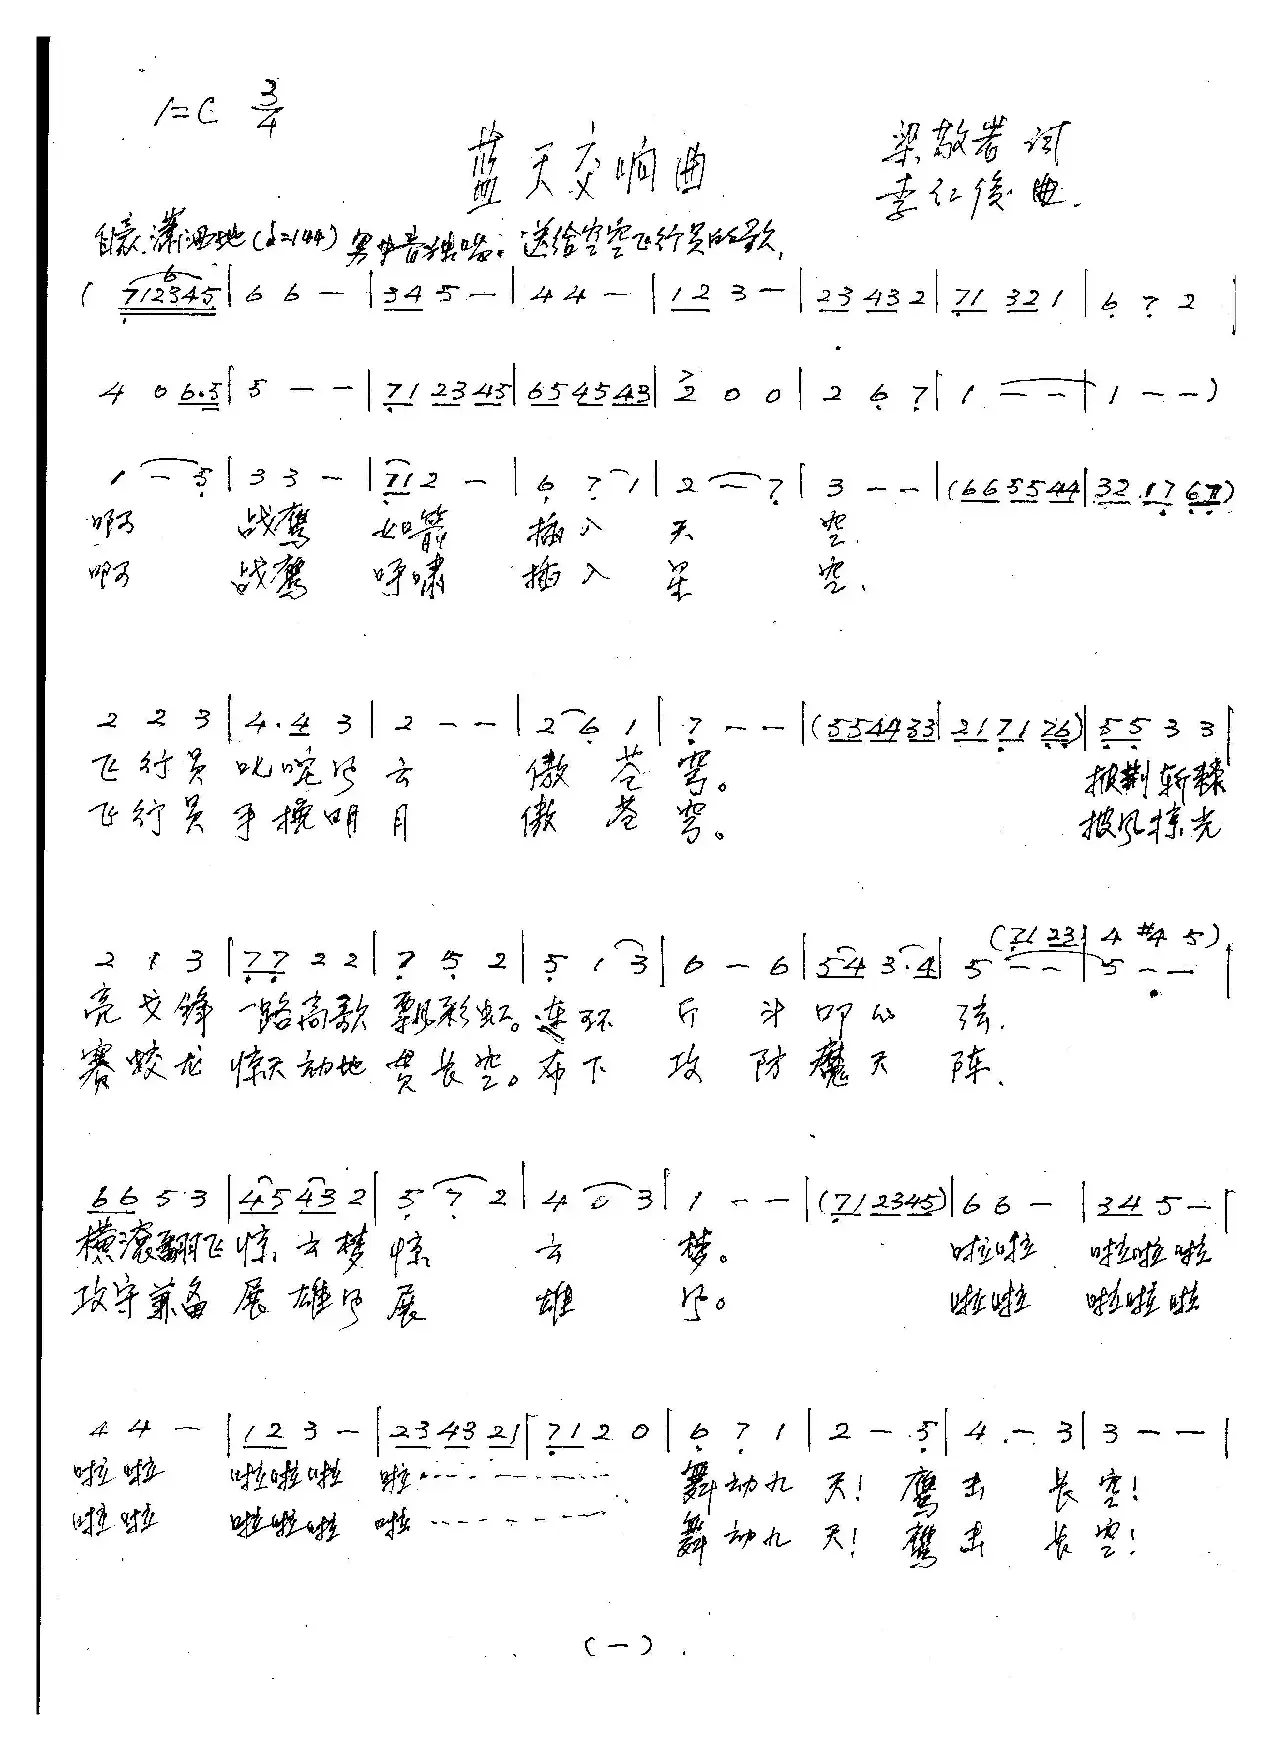 1=C 3/4
蓝天交响曲
梁敬岩 词
李仁俊 曲.
自豪.潇洒地(♩=144) 男中音独唱: 送给空军飞行员的歌,
( 712345 | 6 6 — | 34 5 — | 4 4 — | 12 3 — | 23 43 2 | 71 32 1 | 6 7 2 |
4 0 6.5 | 5 — — | 71 23 45 | 65 45 43 | 2 0 0 | 2 6 7 | 1 — — | 1 — — )
1 — 5 | 3 3 — | 71 2 — | 6 7 1 | 2 — 7 | 3 — — | (66 55 44 | 32 17 67)
啊 战鹰 如箭 插入 天 空.
啊 战鹰 呼啸 插入 星 空.
2 2 3 | 4. 4 3 | 2 — — | 2 6 1 | 7 — — | (55 44 33 | 21 71 76) | 55 3 3 |
飞行员 叱咤风 云 傲 苍 穹。 披荆斩棘
飞行员 手挽明 月 傲 苍 穹。 披风掠光
(71 23 | 4 #4 5)
2 1 3 | 77 2 2 | 7 5 2 | 5 1 3 | 6 — 6 | 54 3.4 | 5 — — | 5 — — |
亮交锋 一路高歌 飘彩虹。连环 斤 斗 叩心 弦.
赛蛟龙 惊天动地 贯长空。布下 攻 防 魔天 阵.
66 5 3 | 45 43 2 | 5 7 2 | 4 0 3 | 1 — — | (71 23 45) | 6 6 — | 34 5 — |
横滚翻飞 惊云梦 惊 云 梦。 啦啦 啦啦啦
攻守兼备 展雄风 展 雄 风。 啦啦 啦啦啦
4 4 — | 12 3 — | 23 43 21 | 71 2 0 | 6 7 1 | 2 — 5 | 4 . — 3 | 3 — — |
啦啦 啦啦啦 啦………… 舞动九 天! 鹰 击 长 空!
啦啦 啦啦啦 啦………… 舞动九 天! 鹰 击 长 空!
(一)